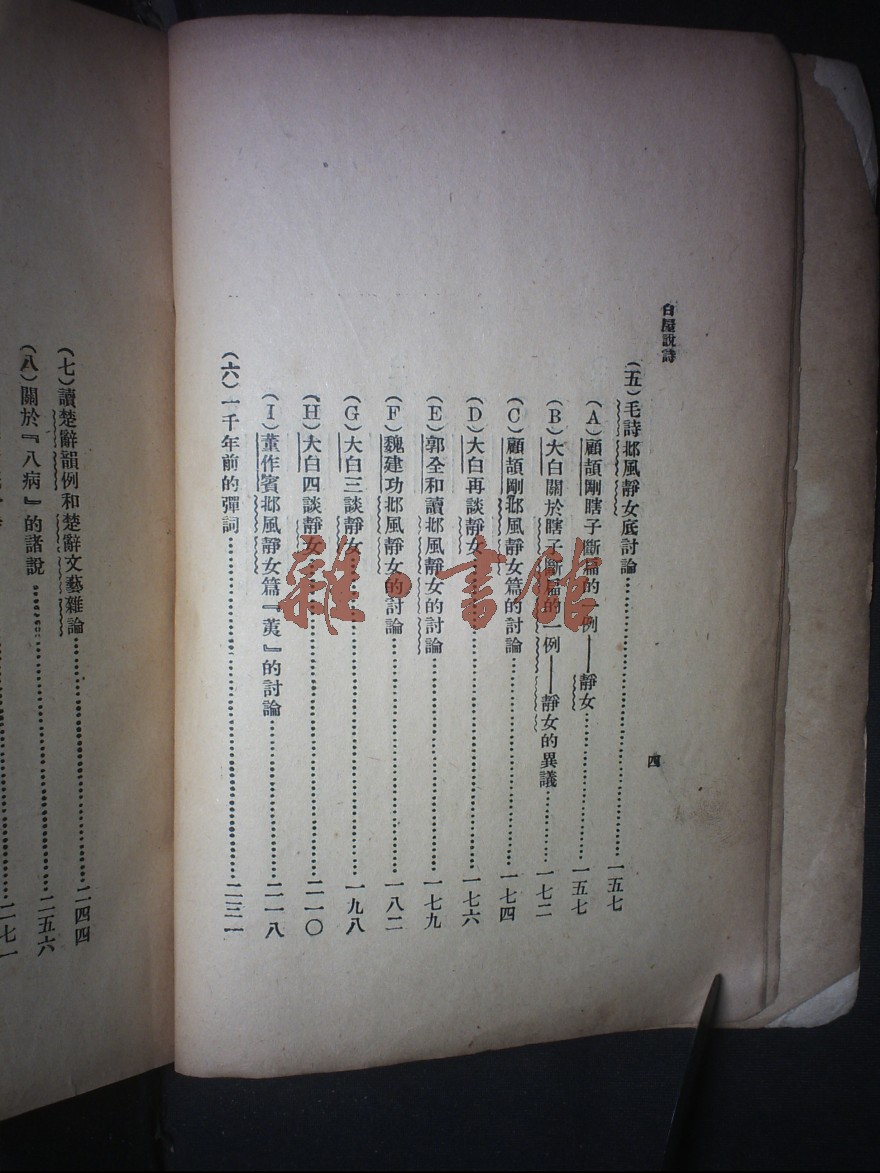 白屋說詩
四
(五)毛詩邶風靜女底討論……一五七
(A)顧頡剛瞎子斷匾的一例——靜女……一五七
(B)大白關於瞎子斷匾的一例——靜女的異議……一七二
(C)顧頡剛邶風靜女篇的討論……一七四
(D)大白再談靜女……一七六
(E)郭全和讀邶風靜女的討論……一七九
(F)魏建功邶風靜女的討論……一八二
(G)大白三談靜女……一九八
(H)大白四談靜女……二一〇
(I)董作賓邶風靜女篇『荑』的討論……二一八
(六)一千年前的彈詞……二三一
(七)讀楚辭韻例和楚辭文藝雜論……二四四
(八)關於『八病』的諸說……二五六
二七一
雜·書館